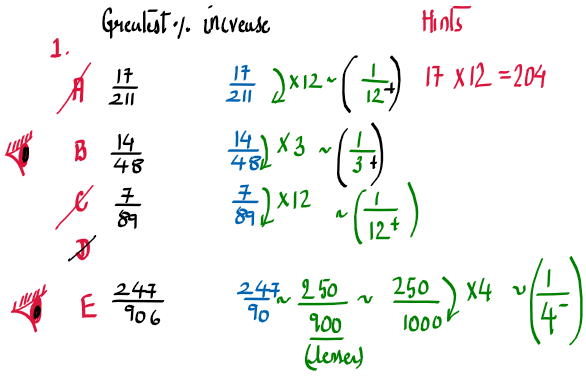 Greatest % increase Hints
1.
A 17/211 17/211 ×12 ~ (1/12+) 17 × 12 = 204
B 14/48 14/48 ×3 ~ (1/3+)
C 7/89 7/89 ×12 ~ (1/12+)
D
E 247/906 247/90 ~ 250/900 ~ 250/1000 ×4 ~ (1/4-)
(lesser)